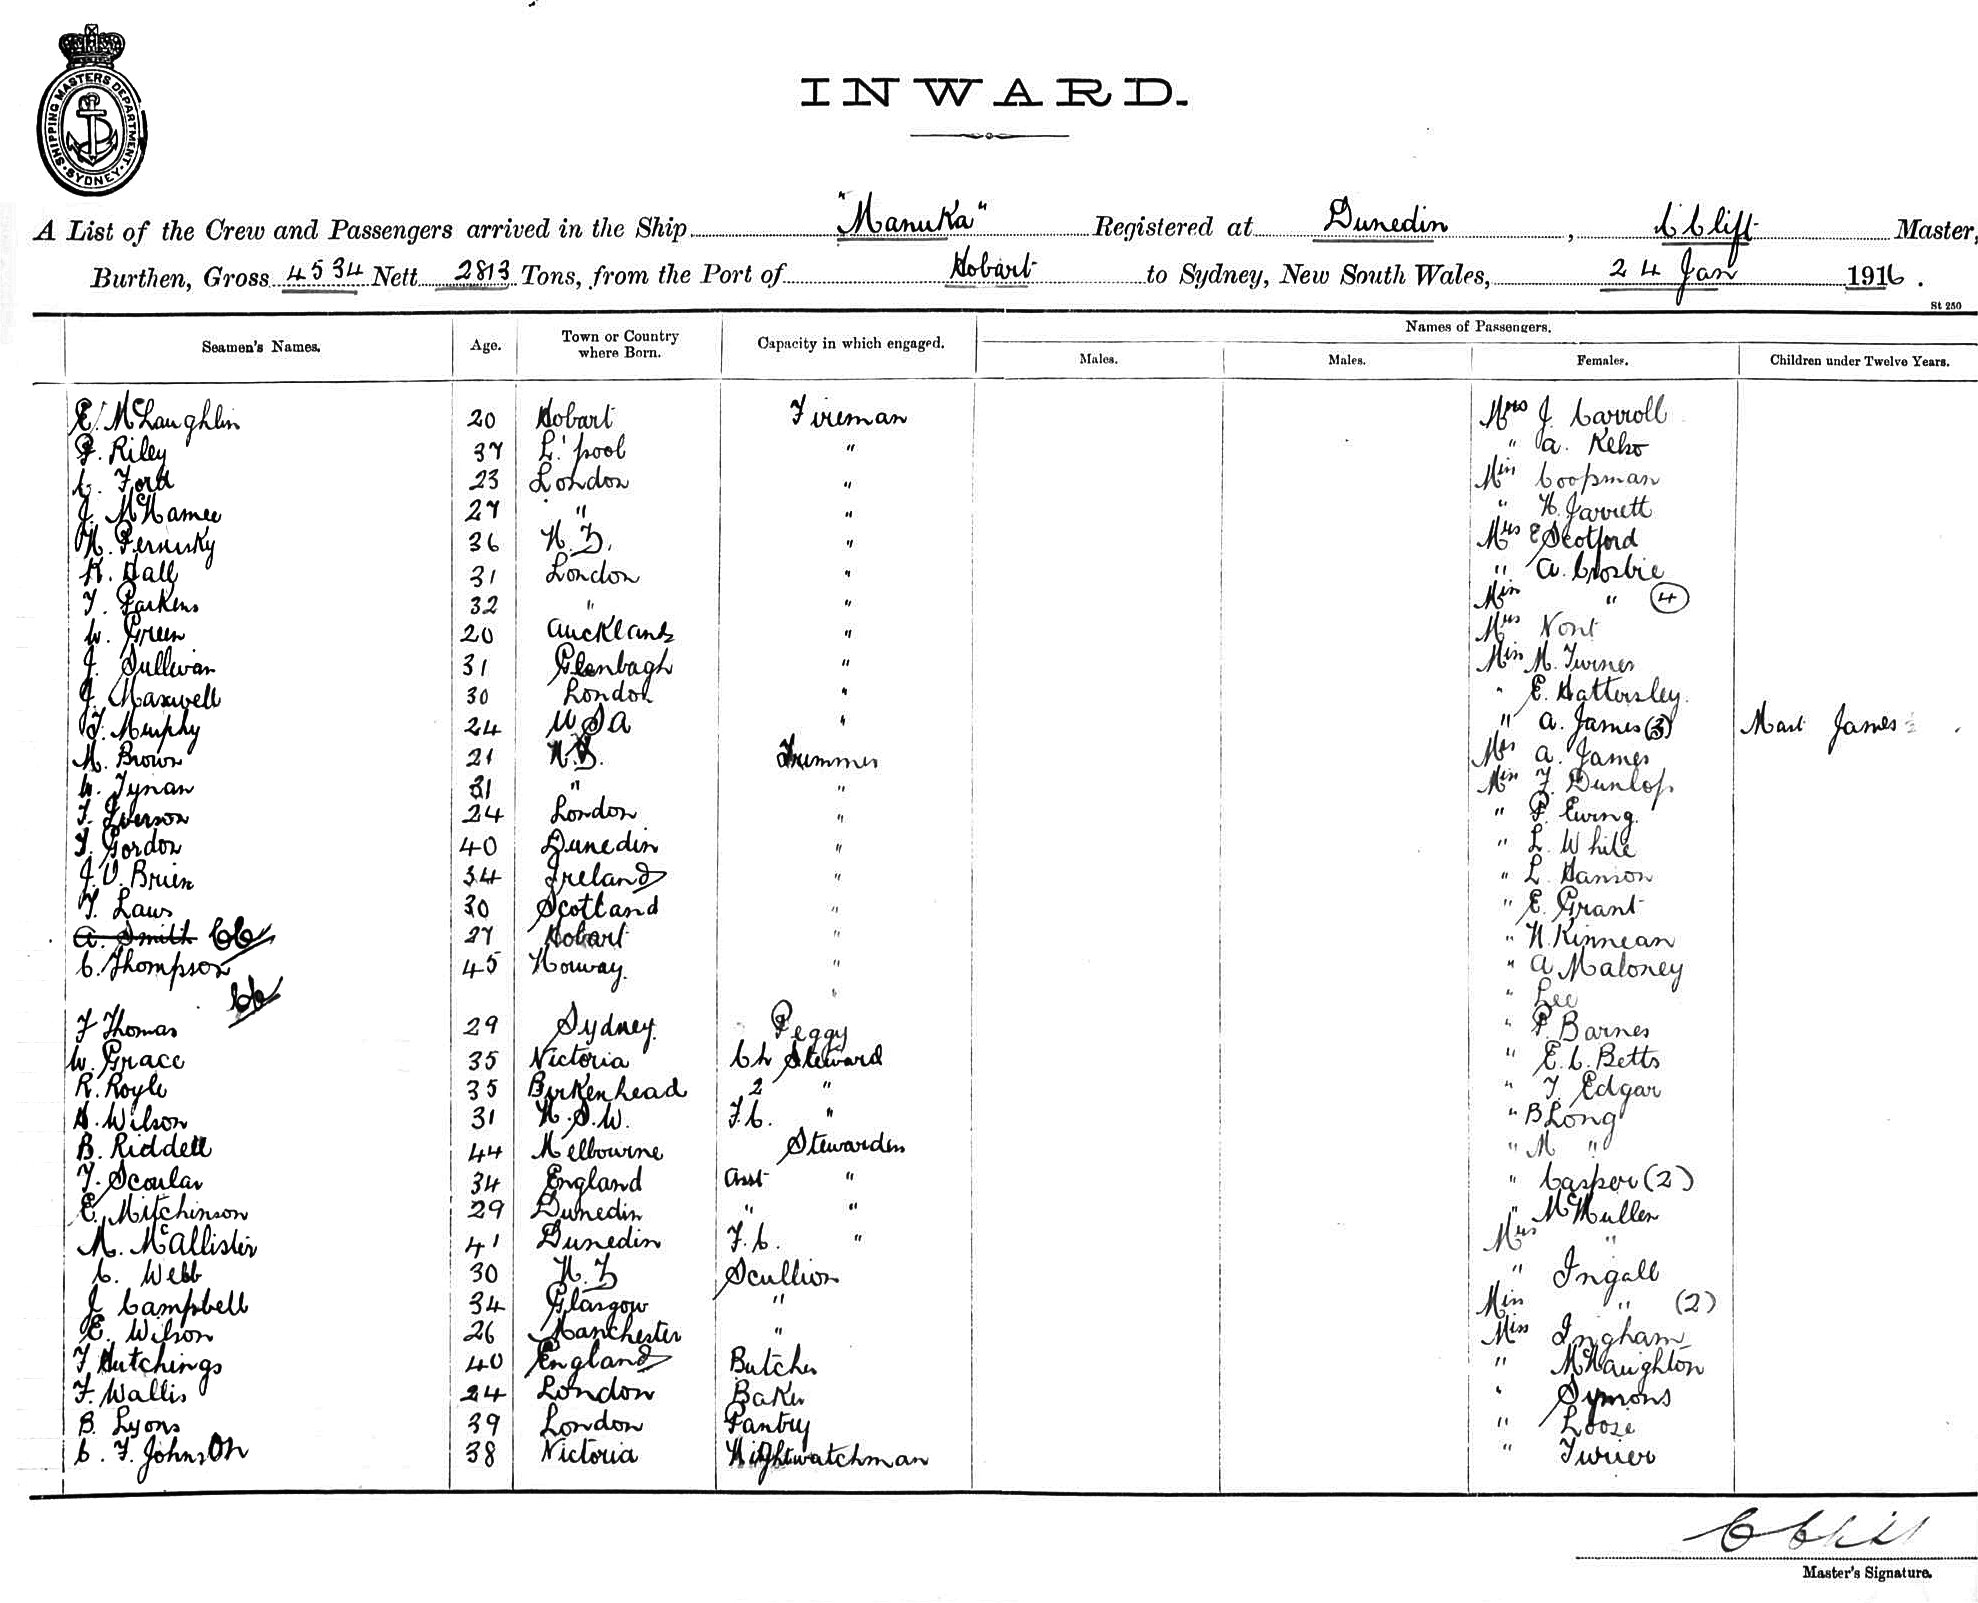 SHIPPING MASTERS DEPARTMENT · SYDNEY ·
INWARD.
A List of the Crew and Passengers arrived in the Ship "Manuka" Registered at Dunedin, C Clift Master,
Burthen, Gross 4534 Nett 2813 Tons, from the Port of Hobart to Sydney, New South Wales, 24 Jan 1916.
St 250
Seamen's Names. Age. Town or Country where Born. Capacity in which engaged. Names of Passengers.
Males. Males. Females. Children under Twelve Years.
E. McLaughlin 20 Hobart Fireman Mrs J. Carroll
F. Riley 37 L'pool " " A. Kelso
C. Ford 23 London " Miss Coopman
J. McNamee 27 " " " H. Jarrett
36 N.Z. " Mrs E Scotford
R. Hall 31 London " " A. Crosbie
T. Parkens 32 " " Miss " (4)
W. Green 20 Auckland " Mrs Nont
J. Sullivan 31 Glenbagh " Miss M. Turner
J. Maxwell 30 London " " E. Hattersley.
T. Murphy 24 USA " " A. James (3) Mast James
M. Brown 21 N.Z. Trimmer Mrs A. James
W. Tynan 31 " " Miss F. Dunlop
T. Iverson 24 London " " P. Ewing.
T. Gordon 40 Dunedin " " L. White
J. O'Brien 34 Ireland " " L. Hanson
T. Laws 30 Scotland " " E. Grant
A. Smith CC 27 Hobart " " N. Kinnean
C. Thompson 45 Norway. " " A Maloney
CC " " Lee
F Thomas 29 Sydney. Peggy " P Barnes
W. Grace 35 Victoria Ch Steward " E. C. Betts
R. Royle 35 Birkenhead 2 " " T. Edgar
H. Wilson 31 N.S.W. F.C. " " B Long
B. Riddell 44 Melbourne Stewardess " M "
T. Scoular 34 England Asst " " Casper (2)
E. Mitchinson 29 Dunedin " " " McMullen
M. McAllister 41 Dunedin F.C. " Mrs "
C. Webb 30 N.Z Scullion " Ingall
J Campbell 34 Glasgow " Miss " (2)
E. Wilson 26 Manchester " Miss Ingham
F Hutchings 40 England Butcher " McNaughton
F. Wallis 24 London Baker " Symons
B. Lyons 39 London Pantry " Loose
C. F. Johnston 38 Victoria Nightwatchman " Turier
C Clift
Master's Signature.